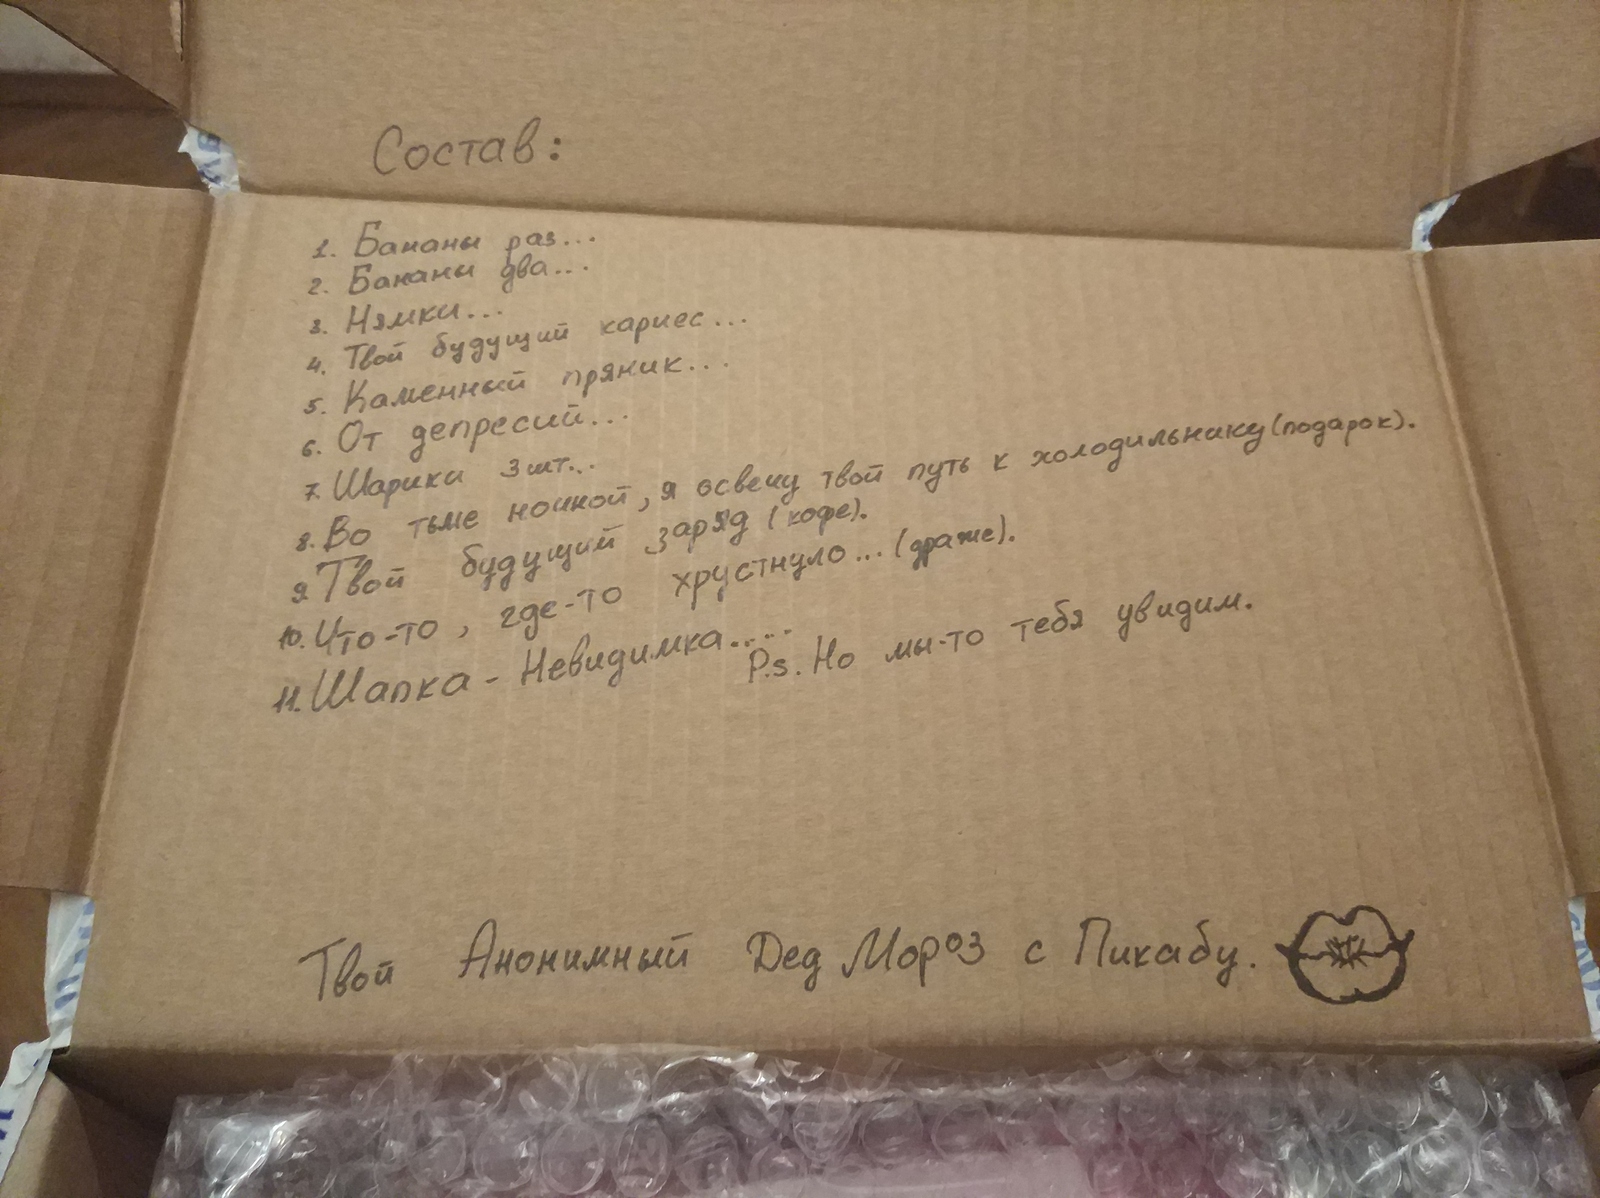 Состав:
1. Бананы раз...
2. Бананы два...
3. Нямки...
4. Твой будущий кариес...
5. Каменный пряник...
6. От депресий...
7. Шарики 3 шт...
8. Во тьме ночной, я освещу твой путь к холодильнику (подарок).
9. Твой будущий заряд (кофе).
10. Что-то, где-то хрустнуло... (драже).
11. Шапка - Невидимка.....
P.s. Но мы-то тебя увидим.
Твой Анонимный Дед Мороз с Пикабу.